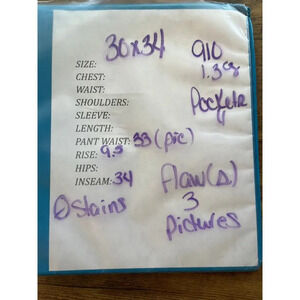 30x34 910
SIZE: 1.3
CHEST:
WAIST: Pockets
SHOULDERS:
SLEEVE:
LENGTH:
PANT WAIST: 33 (pic)
RISE: 9.5
HIPS:
INSEAM: 34 Flaw(Δ)
0 Stains 3
Pictures